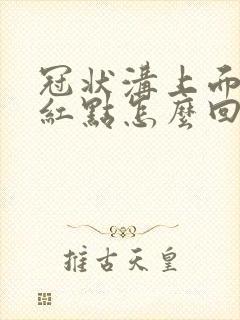 冠狀溝上而
紅點怎麼回
推古天皇